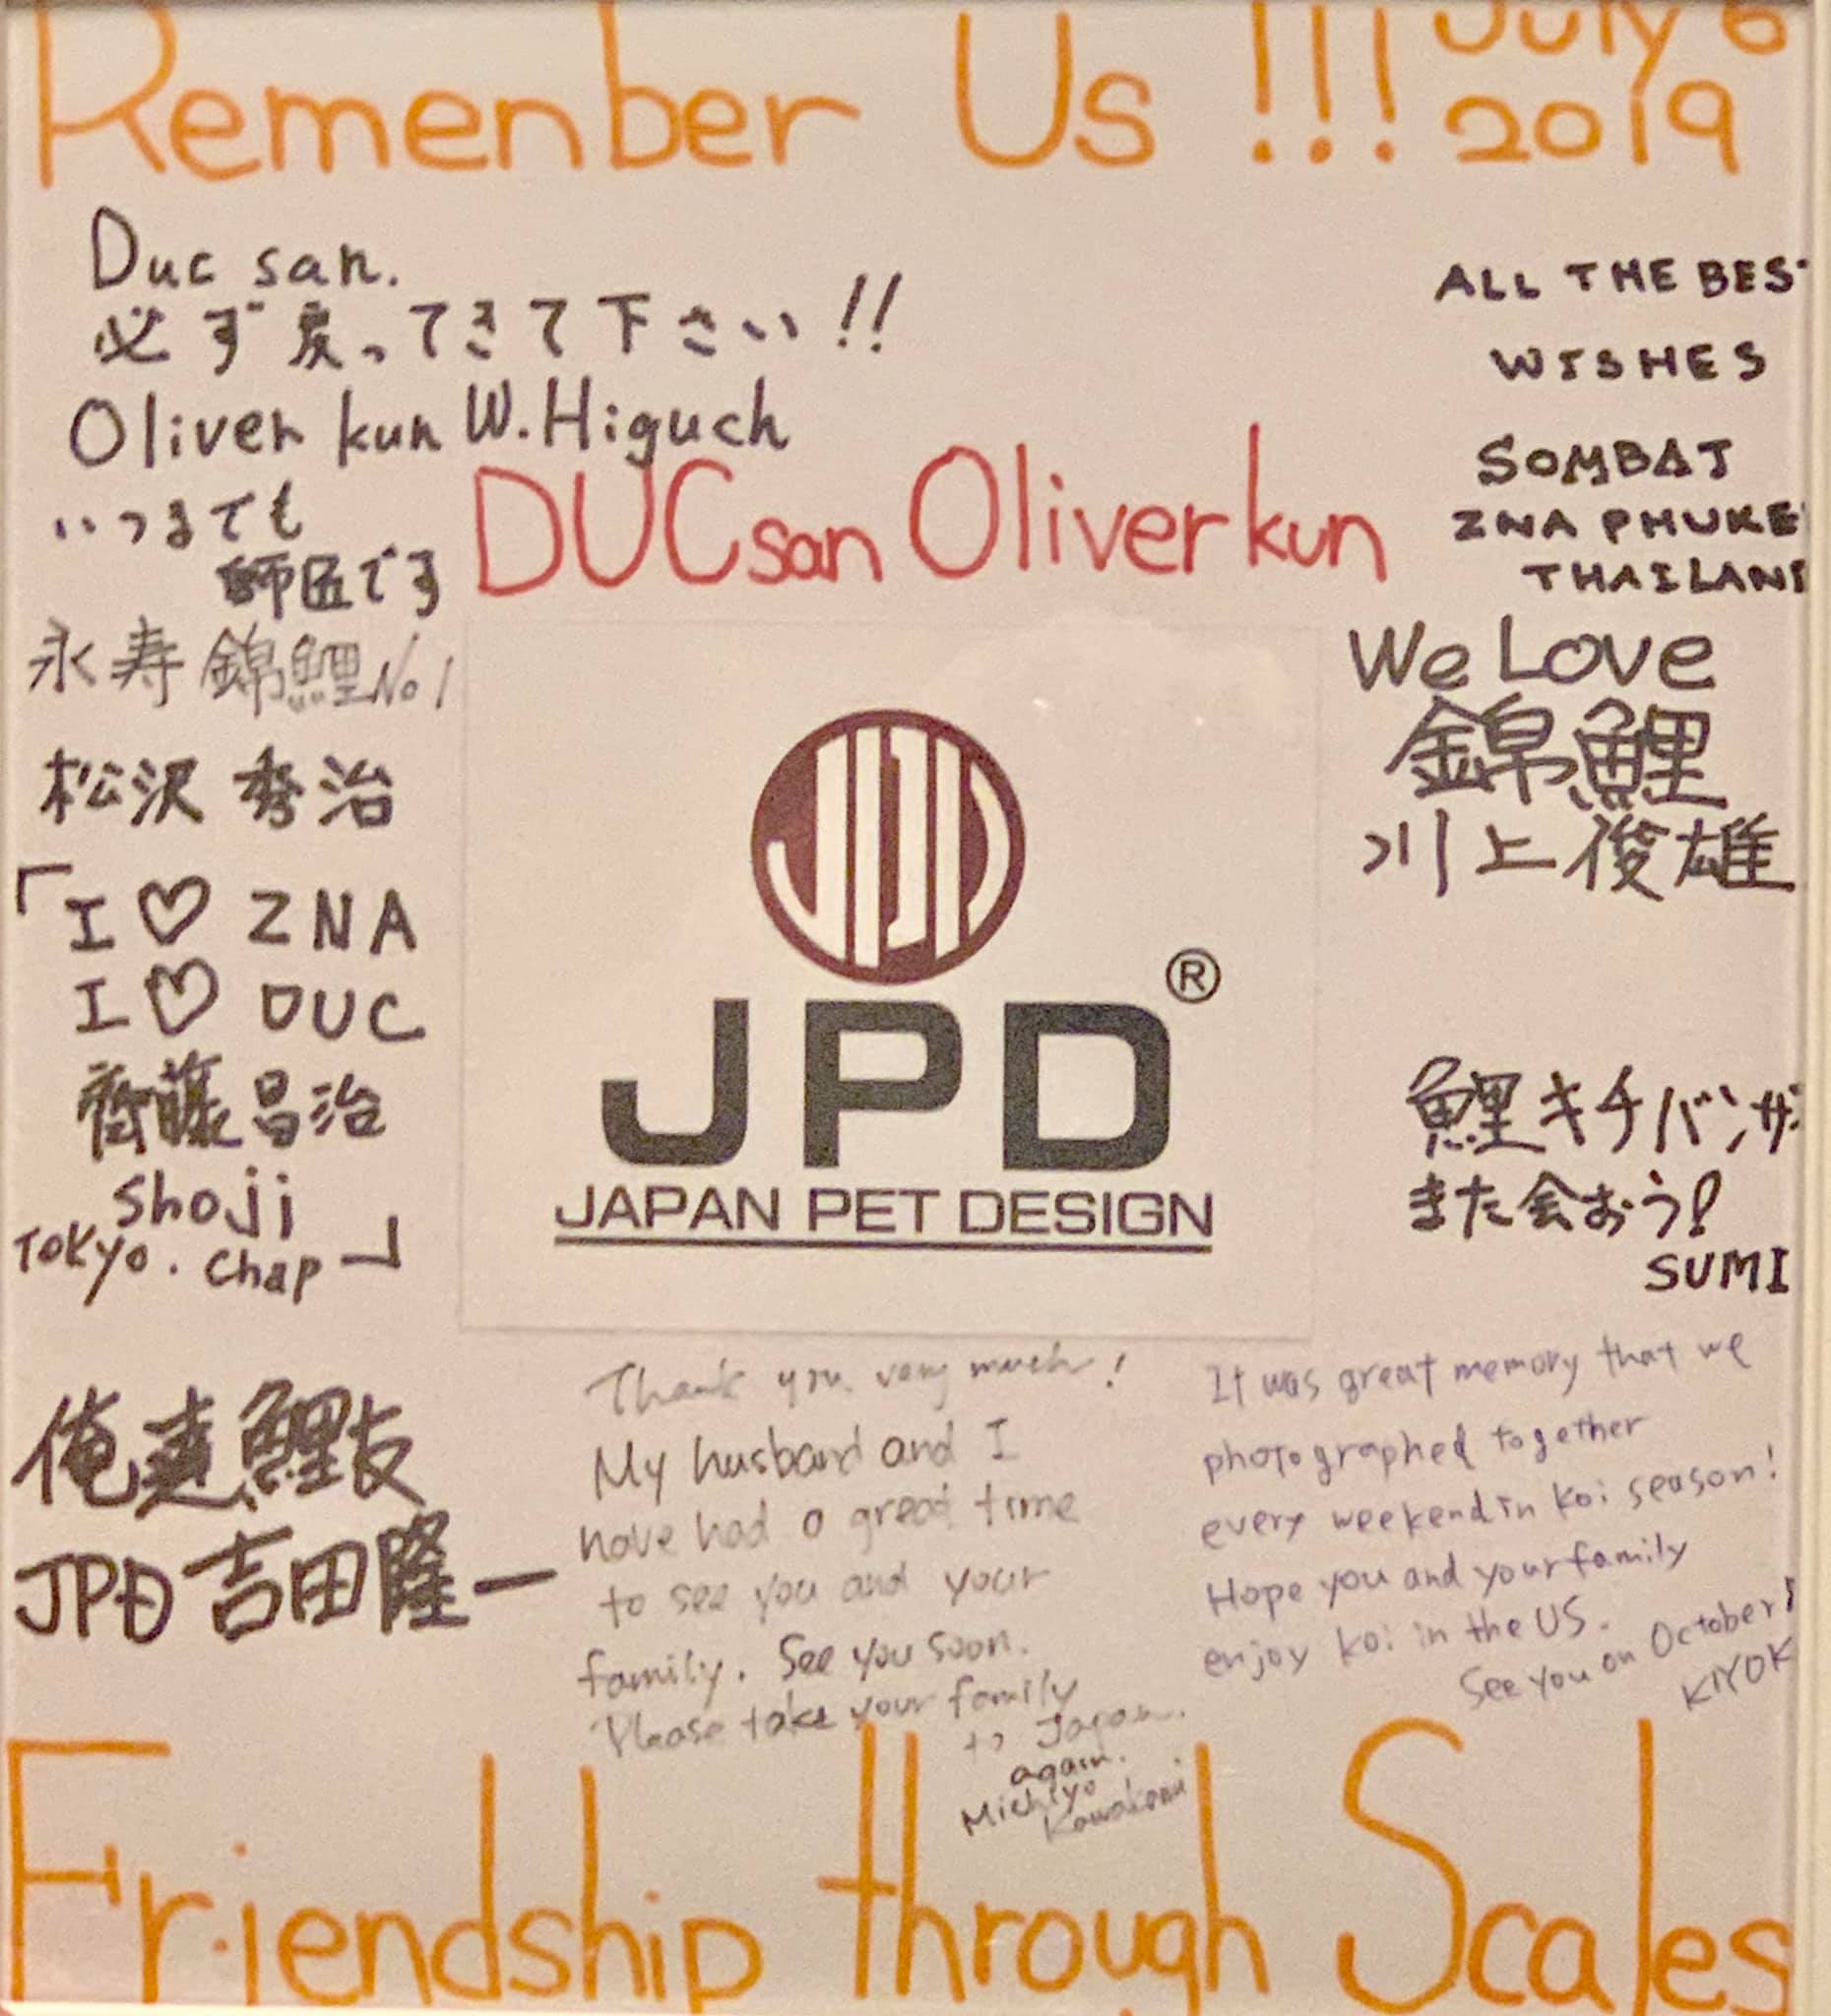 Remenber Us !!! July 6
2019
Duc san.
必ず戻ってきて下さい!!
Oliver kun W.Higuch
いつまでも
師匠です
永寿 錦鯉 No1
松沢 秀治
「I ♡ ZNA
I ♡ DUC
齊藤 昌治
Shoji
TOKYO. Chap」
俺達鯉友
JPD 吉田隆一
DUC san Oliver kun
JPD®
JAPAN PET DESIGN
ALL THE BES
WISHES
SOMBAT
ZNA PHUKE
THAILAN
We Love
錦鯉
川上俊雄
鯉キチバンザ
また会おう!
SUMI
Thank you very much!
My husband and I
have had a great time
to see you and your
family. See you soon.
Please take your family
to Japan.
again.
Michiyo
Kawakami
It was great memory that we
photographed together
every weekend in Koi season!
Hope you and your family
enjoy koi in the US.
See you on October!
KIYOK
Friendship through Scales